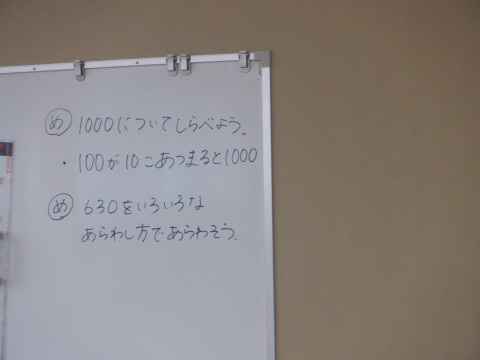 め 1000についてしらべよう。
・100が10こあつまると1000
め 630をいろいろな
あらわし方であらわそう。